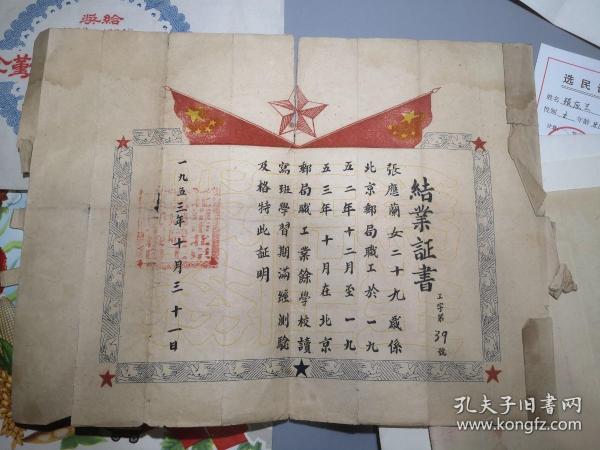 結業証書
工字第39號
張應蘭女二十九歲係
北京郵局職工於一九
五二年十二月至一九
五三年十月在北京
郵局職工業餘學校讀
寫班學習期滿經測驗
及格特此証明
一九五三年十月三十一日
給獎
选民
姓名
性别 女 年龄
孔夫子旧书网
www.kongfz.com